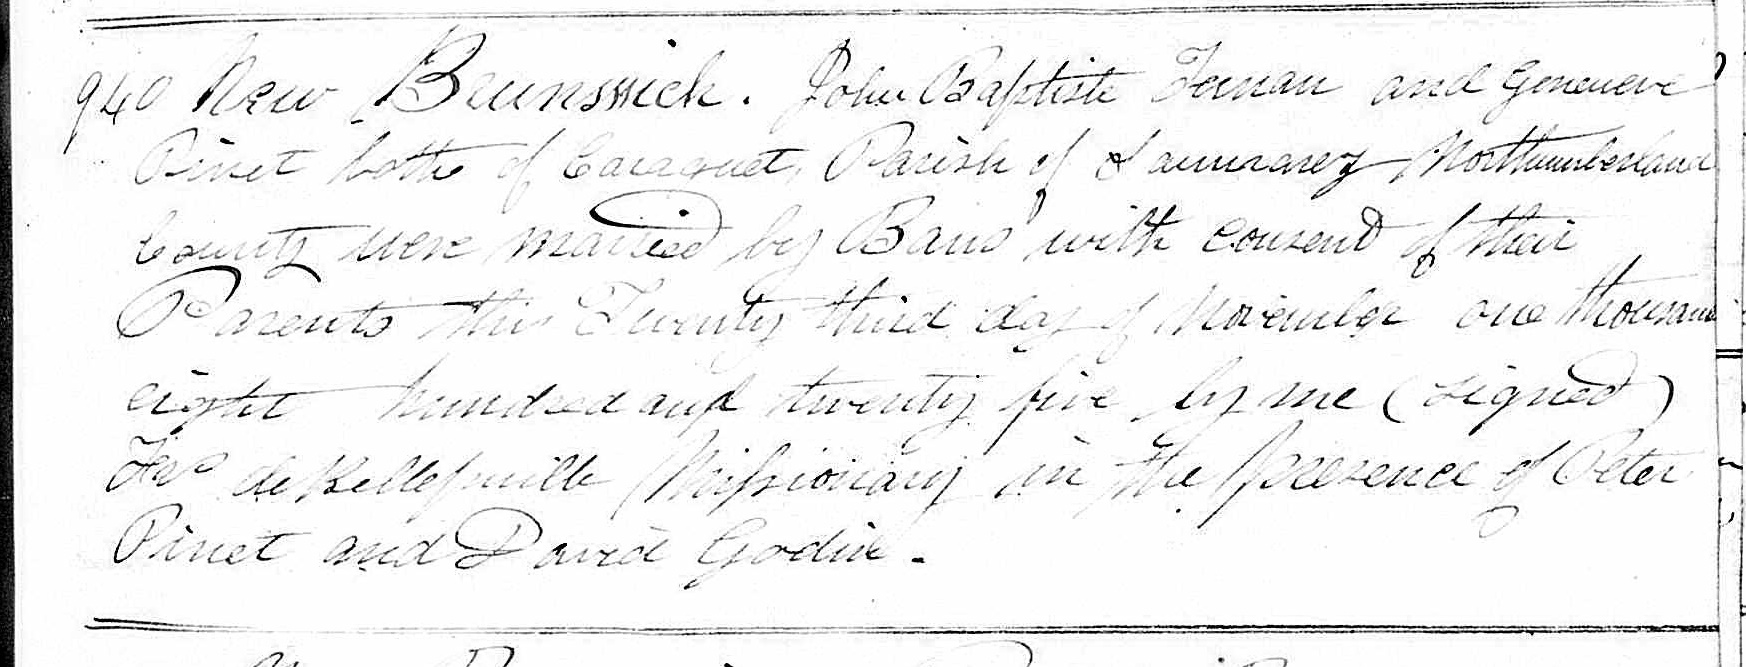 940 New Brunswick. John Baptiste Ternan and Genevieve
Pinet bothe of Caraquet, Parish of Saumarez Northumberland
County were married by Bans with consend of their
Parents this Twenty third day of November one thousand
eight hundred and twenty five by me (signed)
de Bellefeuille Missionary in the presence of Peter
Pinet and David Godin.